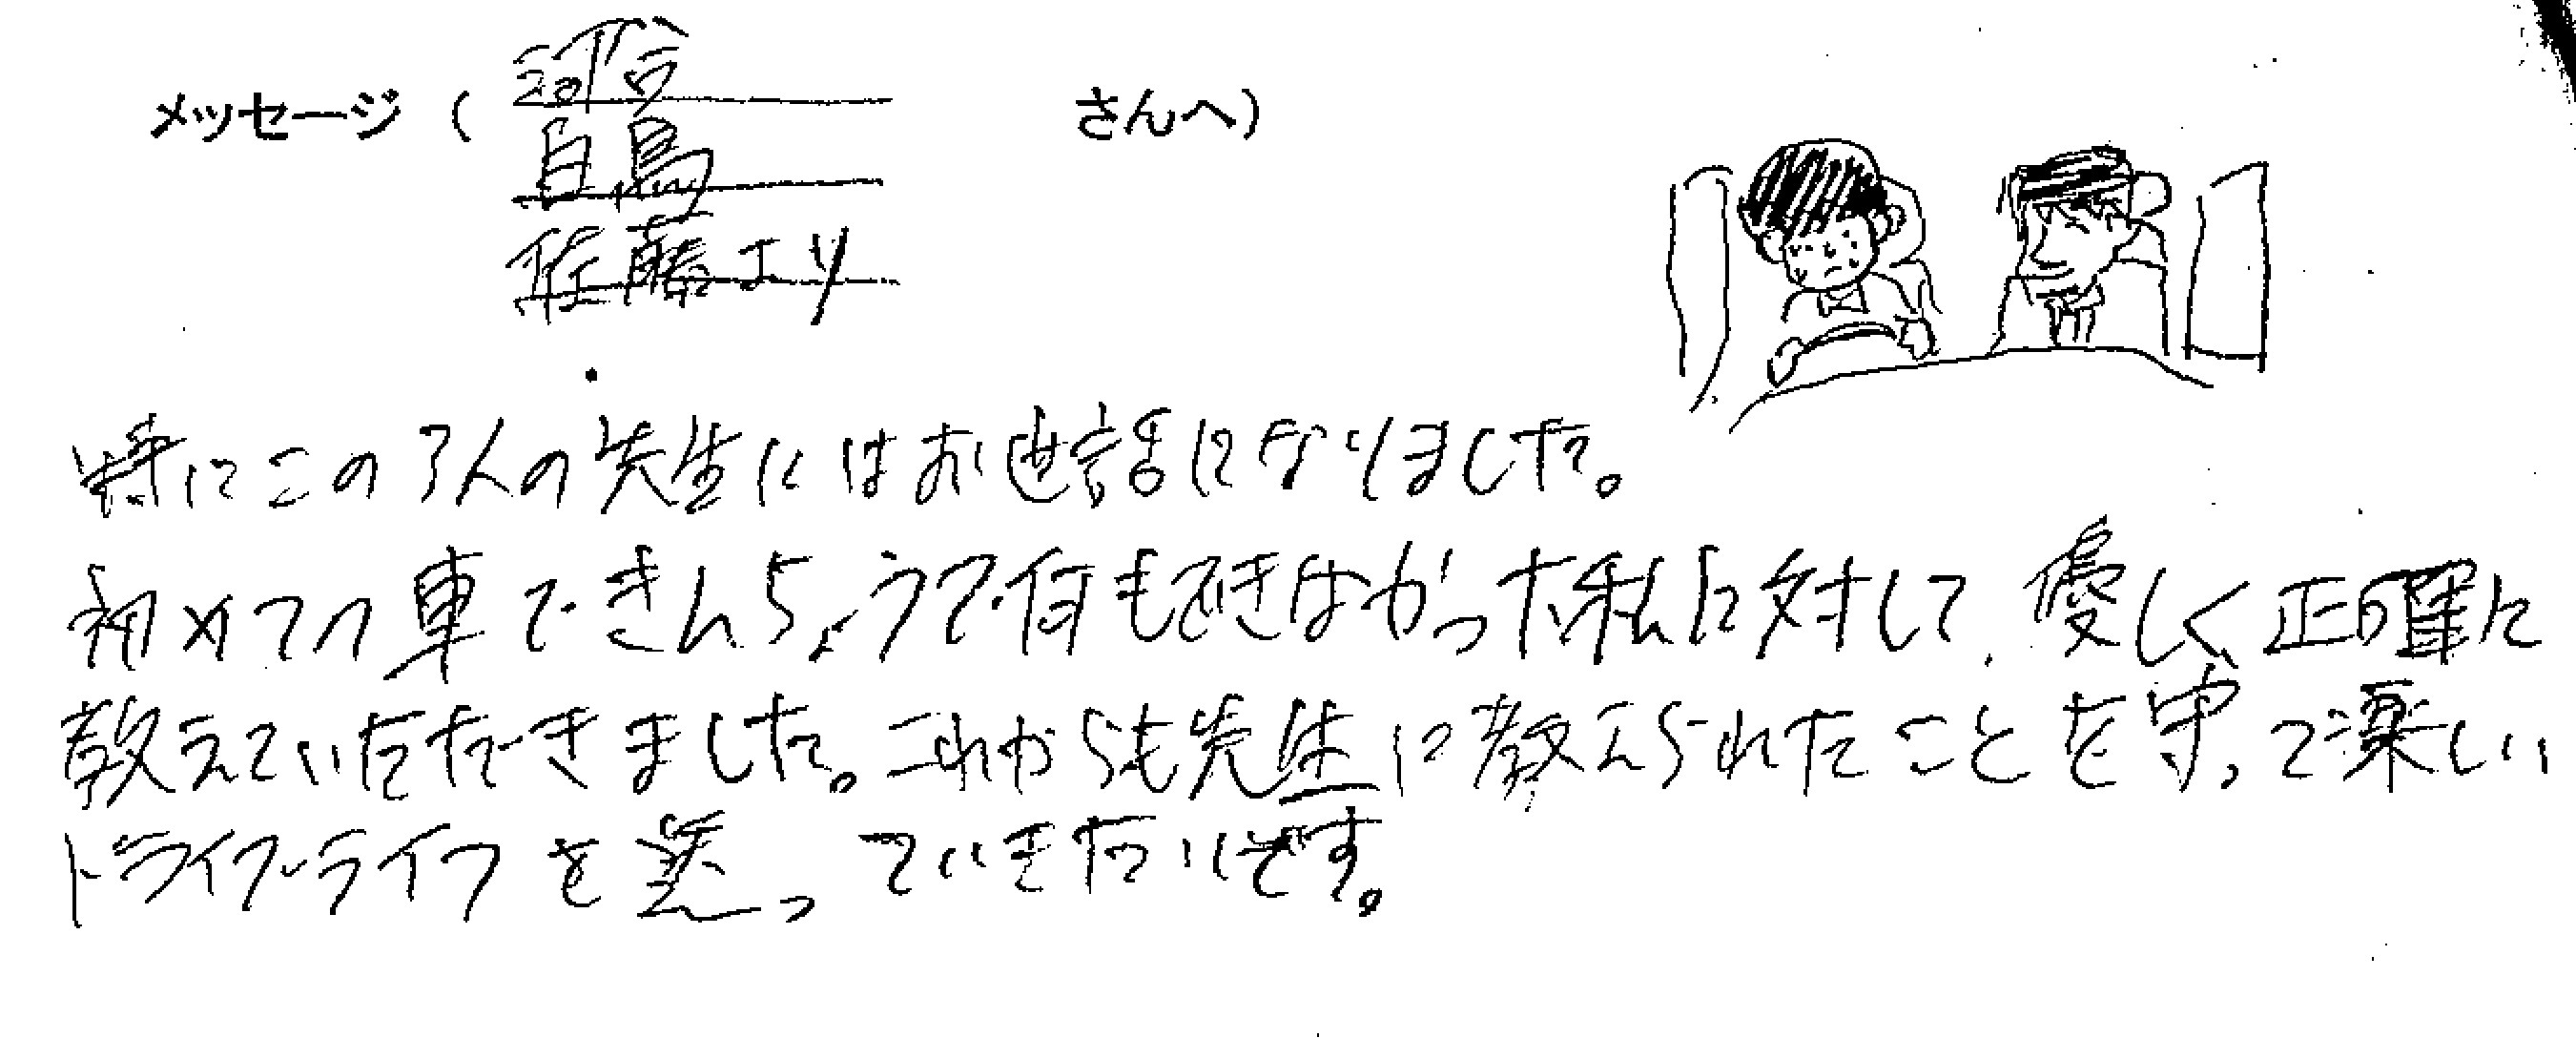 メッセージ(
さんへ)
白鳥
佐藤より
特にこの3人の先生にはお世話になりました。
初めての車できんちょうで何もできなかった私に対して、優しく正確に
教えていただきました。これからも先生に教えられたことを守って楽しい
ドライブライフを送っていきたいです。